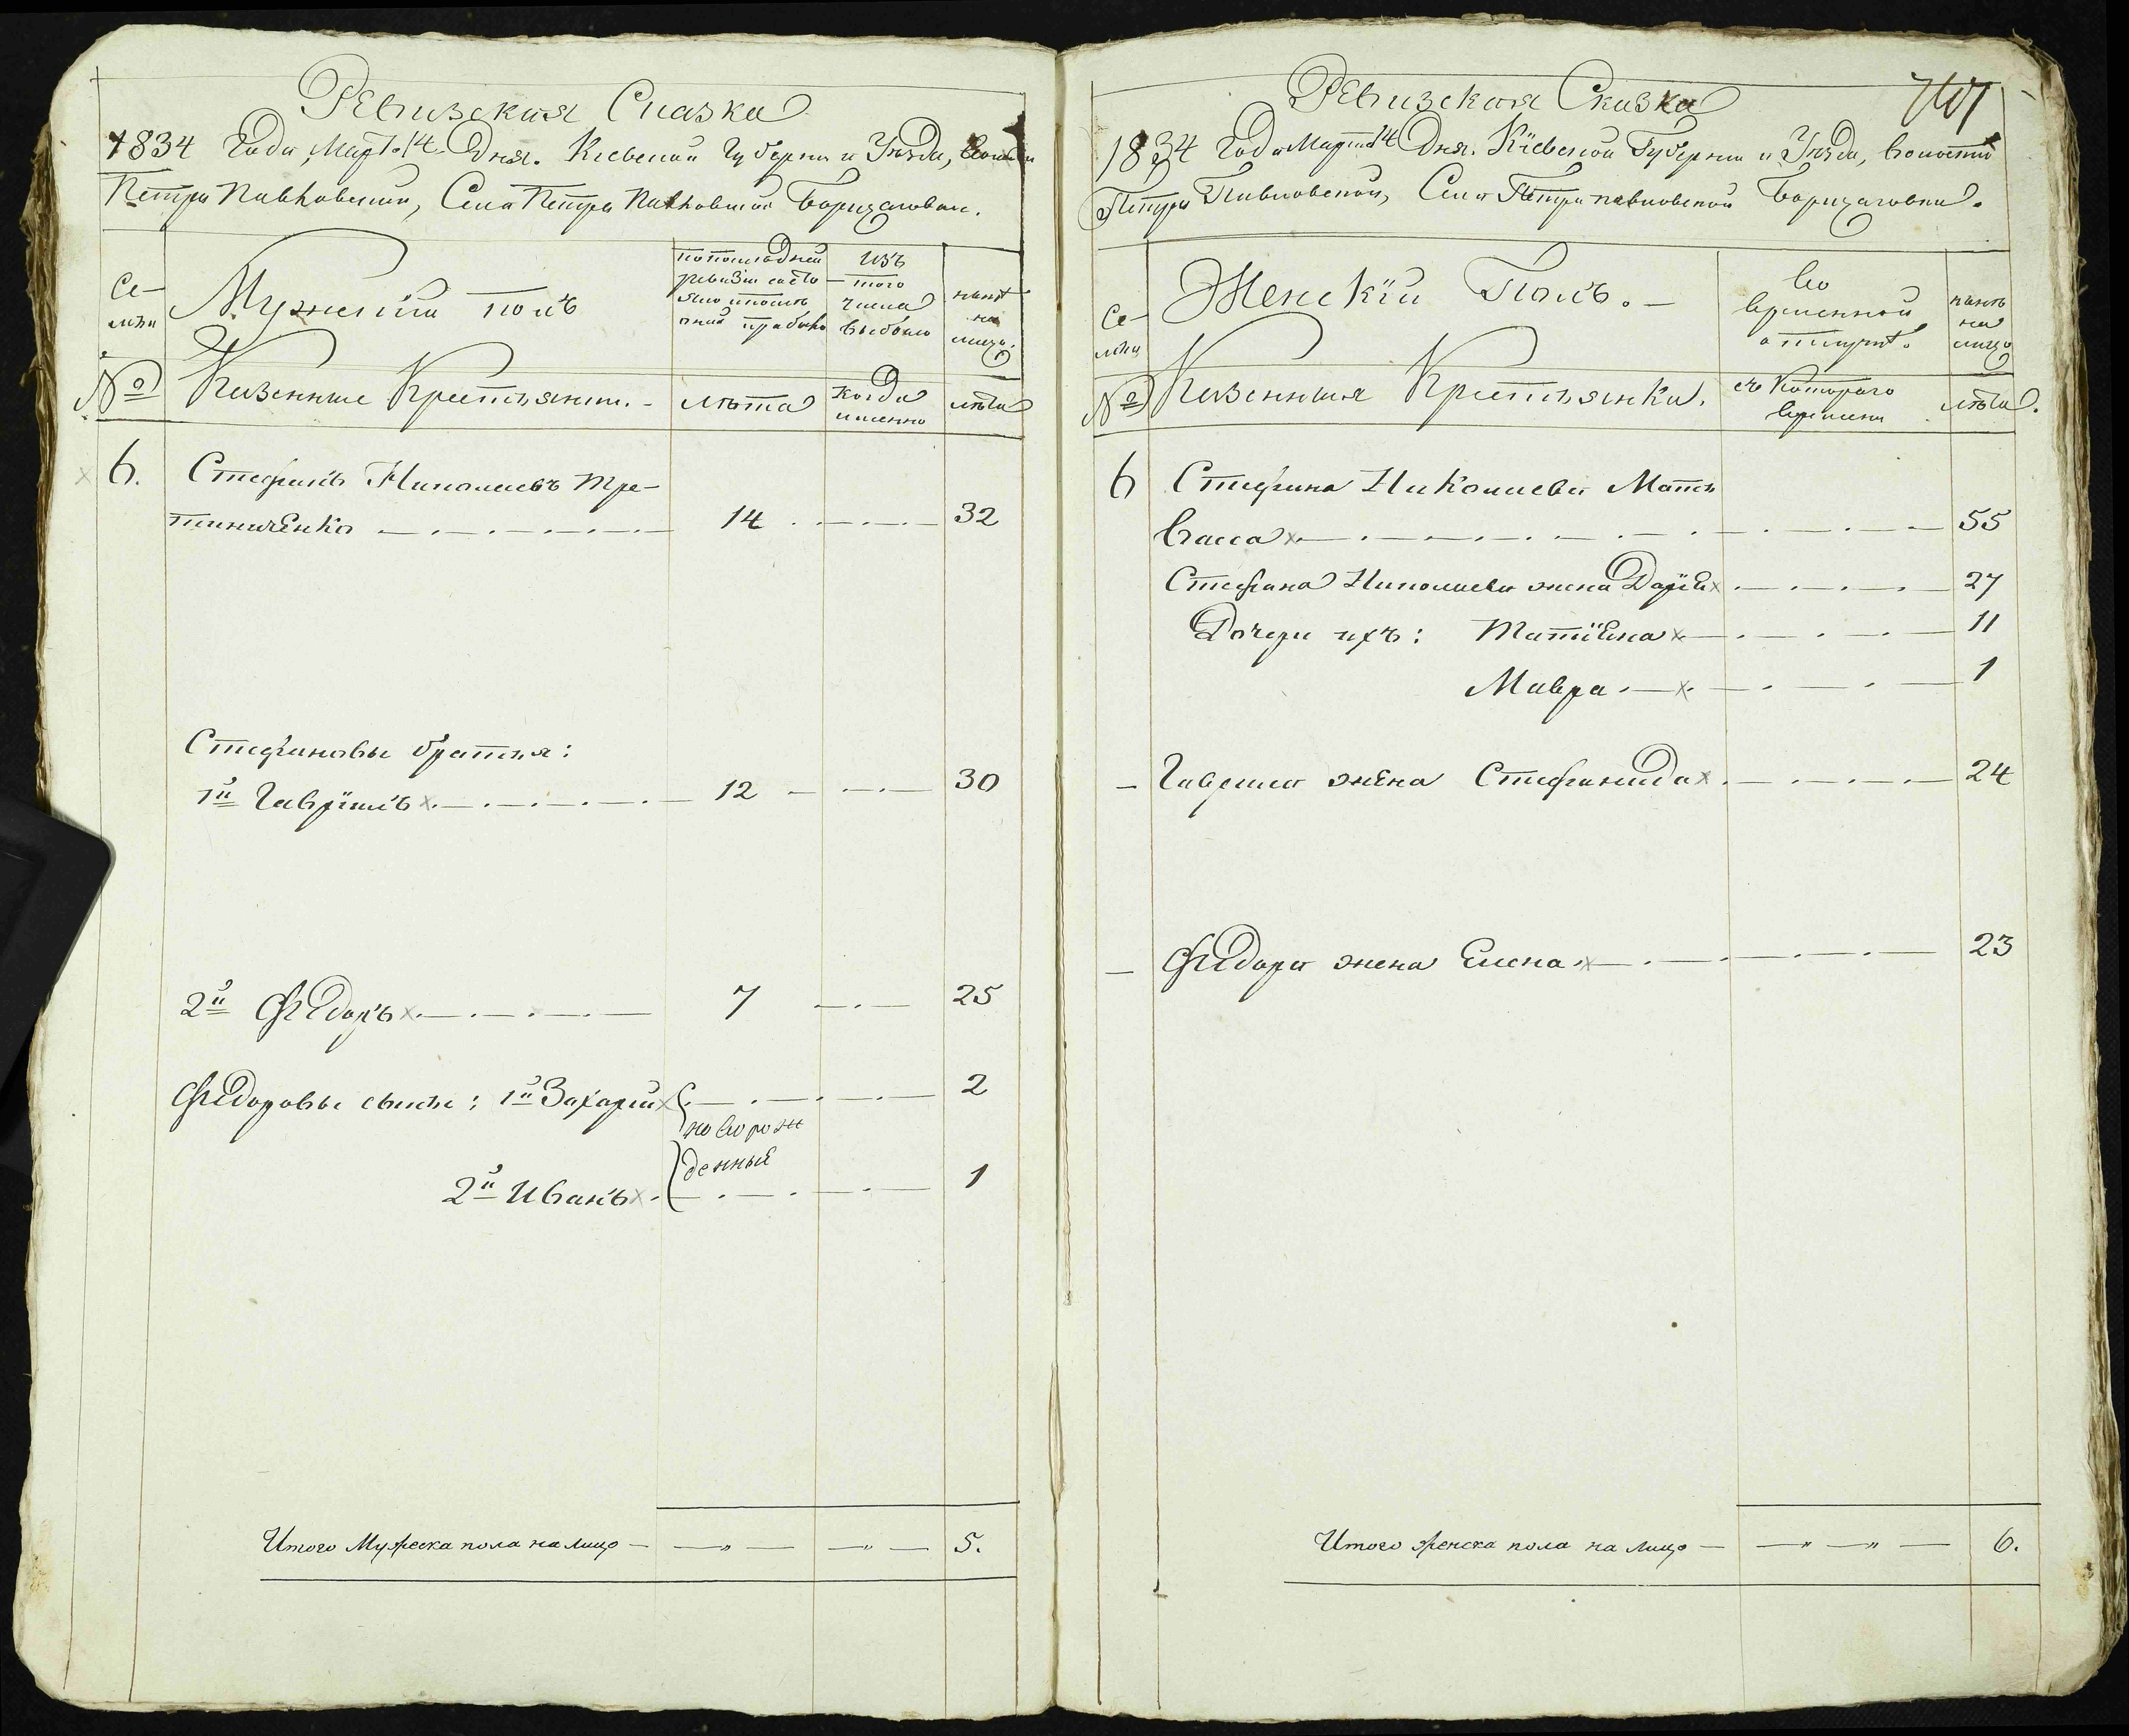 Ревизская Сказка
1834 Года, Март. 14 Дня. Киевской Губернии и Уезда,
Петра Павловской, Села Петра Павловской Борщаговки.
Се-
мьи
Мужескій полъ
по последней
ревизіи состо-
яло и после
оной прибыло
Изъ
того
числа
выбыло
ныне
на
лицо.
№
Казенные Крестьяне. -
лѣта
когда
именно
лѣта
6. Стефанъ Николаевъ Тре-
тиниченко 14 32
Стефановы братья:
1й Гавріилъ 12 30
2й Федоръ 7 25
Федоровы сыны: 1й Захарій 2
новорож
денные
2й Иванъ 1
Итого Мужеска пола на лицо — 5.
Ревизская Сказка
1834 Года Марта 14 Дня. Кіевской Губернии и Уезда, волости
Петра Павловской, Села Петра павловской Борщаговки.
Се-
мьи
Женскій Полъ. -
Во
временной
отлучке.
ныне
на
лицо
№
Казенныя Крестьянки.
съ Котораго
времени
лѣта.
6 Стефана Николаева Мать
Васса 55
Стефана Николаева жена Дарія 27
Дочери ихъ: Татіяна 11
Мавра 1
— Гаврила жена Стефанида 24
— Федора жена Елена 23
Итого женска пола на лицо — 6.